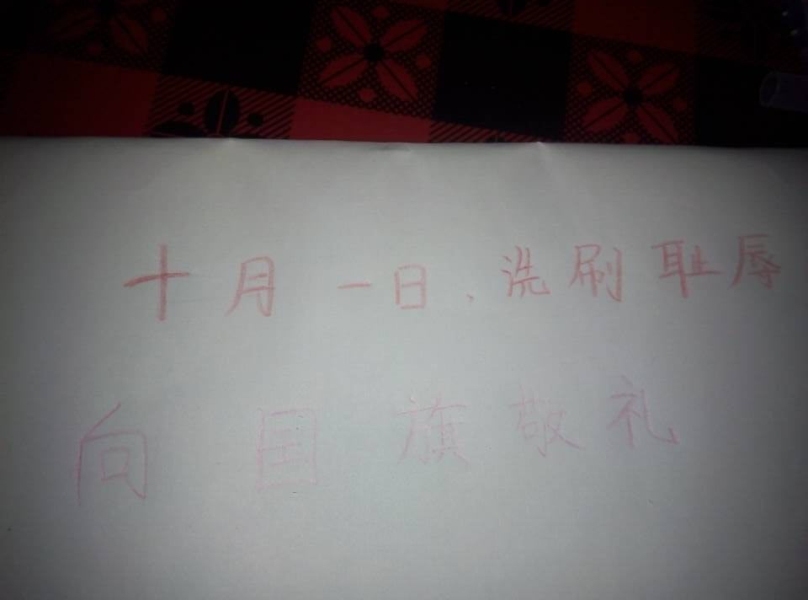 十月一日、洗刷耻辱
向国旗敬礼